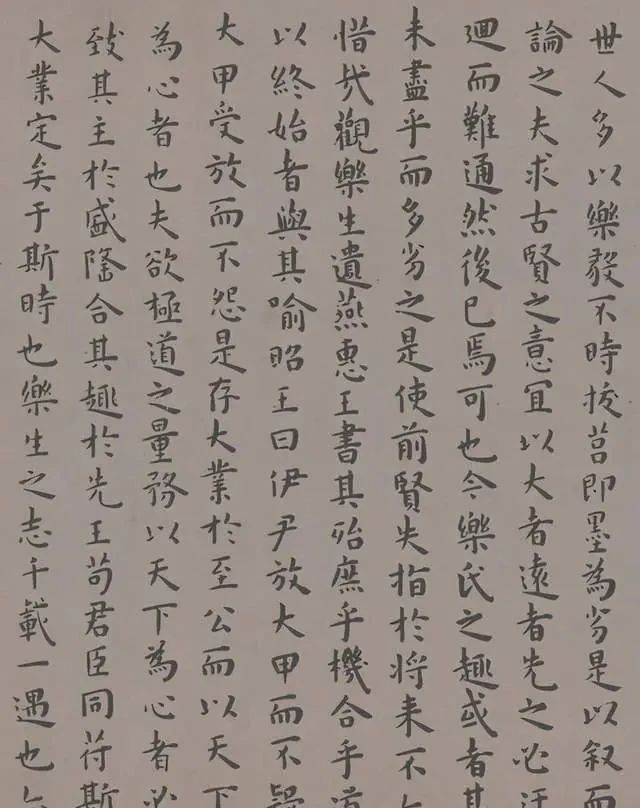 世人多以樂毅不時拔莒即墨為劣是以叙而
論之夫求古賢之意宜以大者遠者先之必迂
迴而難通然後已焉可也今樂氏之趣或者其
未盡乎而多劣之是使前賢失指於将来不
惜哉觀樂生遺燕惠王書其殆庶乎機合乎道
以終始者與其喻昭王曰伊尹放大甲而不疑
大甲受放而不怨是存大業於至公而以天下
為心者也夫欲極道之量務以天下為心者必
致其主於盛隆合其趣於先王苟君臣同苻斯
大業定矣于斯時也樂生之志千載一遇也